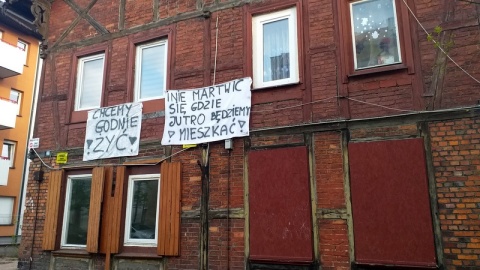 CHCEMY
GODNIE
♥ ŻYĆ ♥
NIE MARTWIĆ
SIĘ GDZIE
JUTRO BĘDZIEMY
♥ MIESZKAĆ ♥